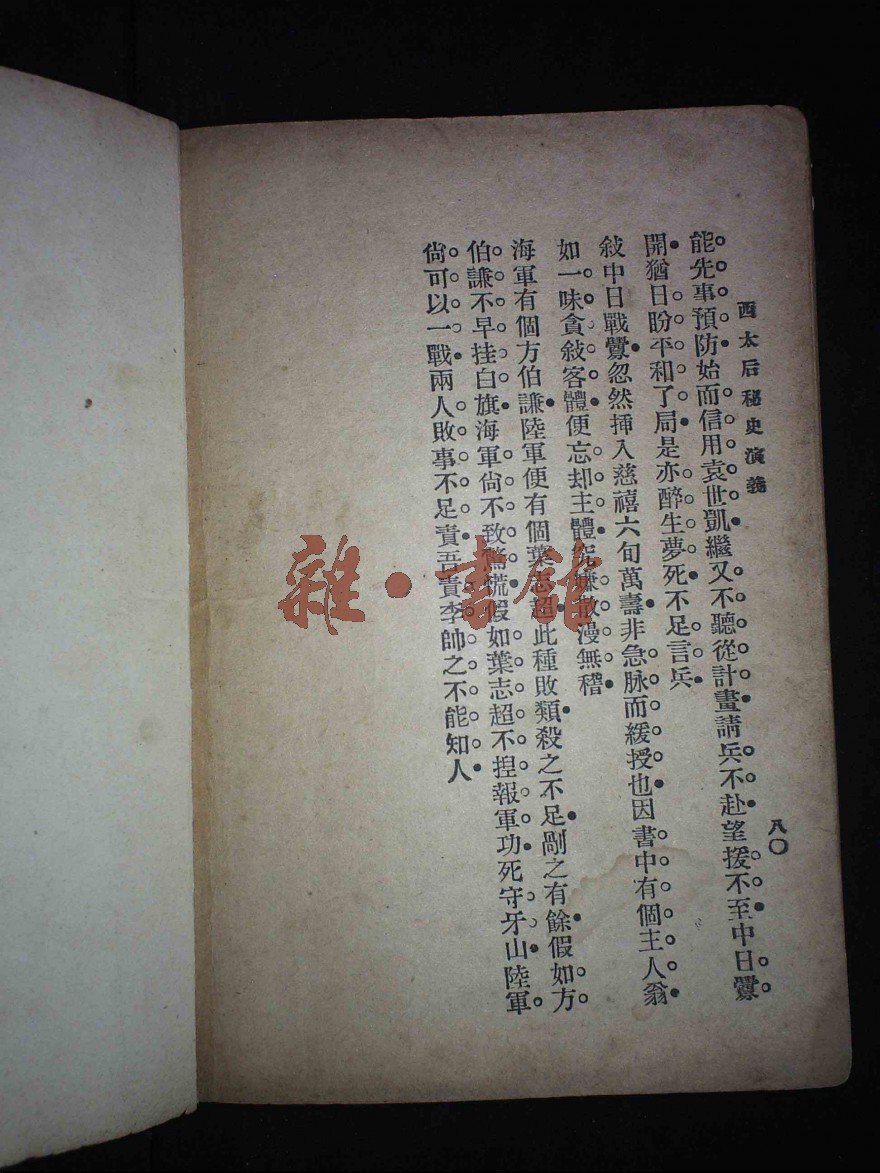 西太后秘史演義
八〇
能先事預防始而信用袁世凱繼又不聽從計畫請兵不赴望援不至中日釁
開猶日盼平和了局是亦醉生夢死不足言兵
敍中日戰釁忽然揷入慈禧六旬萬壽非急脉而緩授也因書中有個主人翁
如一味貪敍客體便忘却主體究嫌散漫無稽
海軍有個方伯謙陸軍便有個葉志超此種敗類殺之不足剮之有餘假如方
伯謙不早挂白旗海軍尙不致驚慌假如葉志超不揑報軍功死守牙山陸軍
尙可以一戰兩人敗事不足責吾責李帥之不能知人
雜·書館